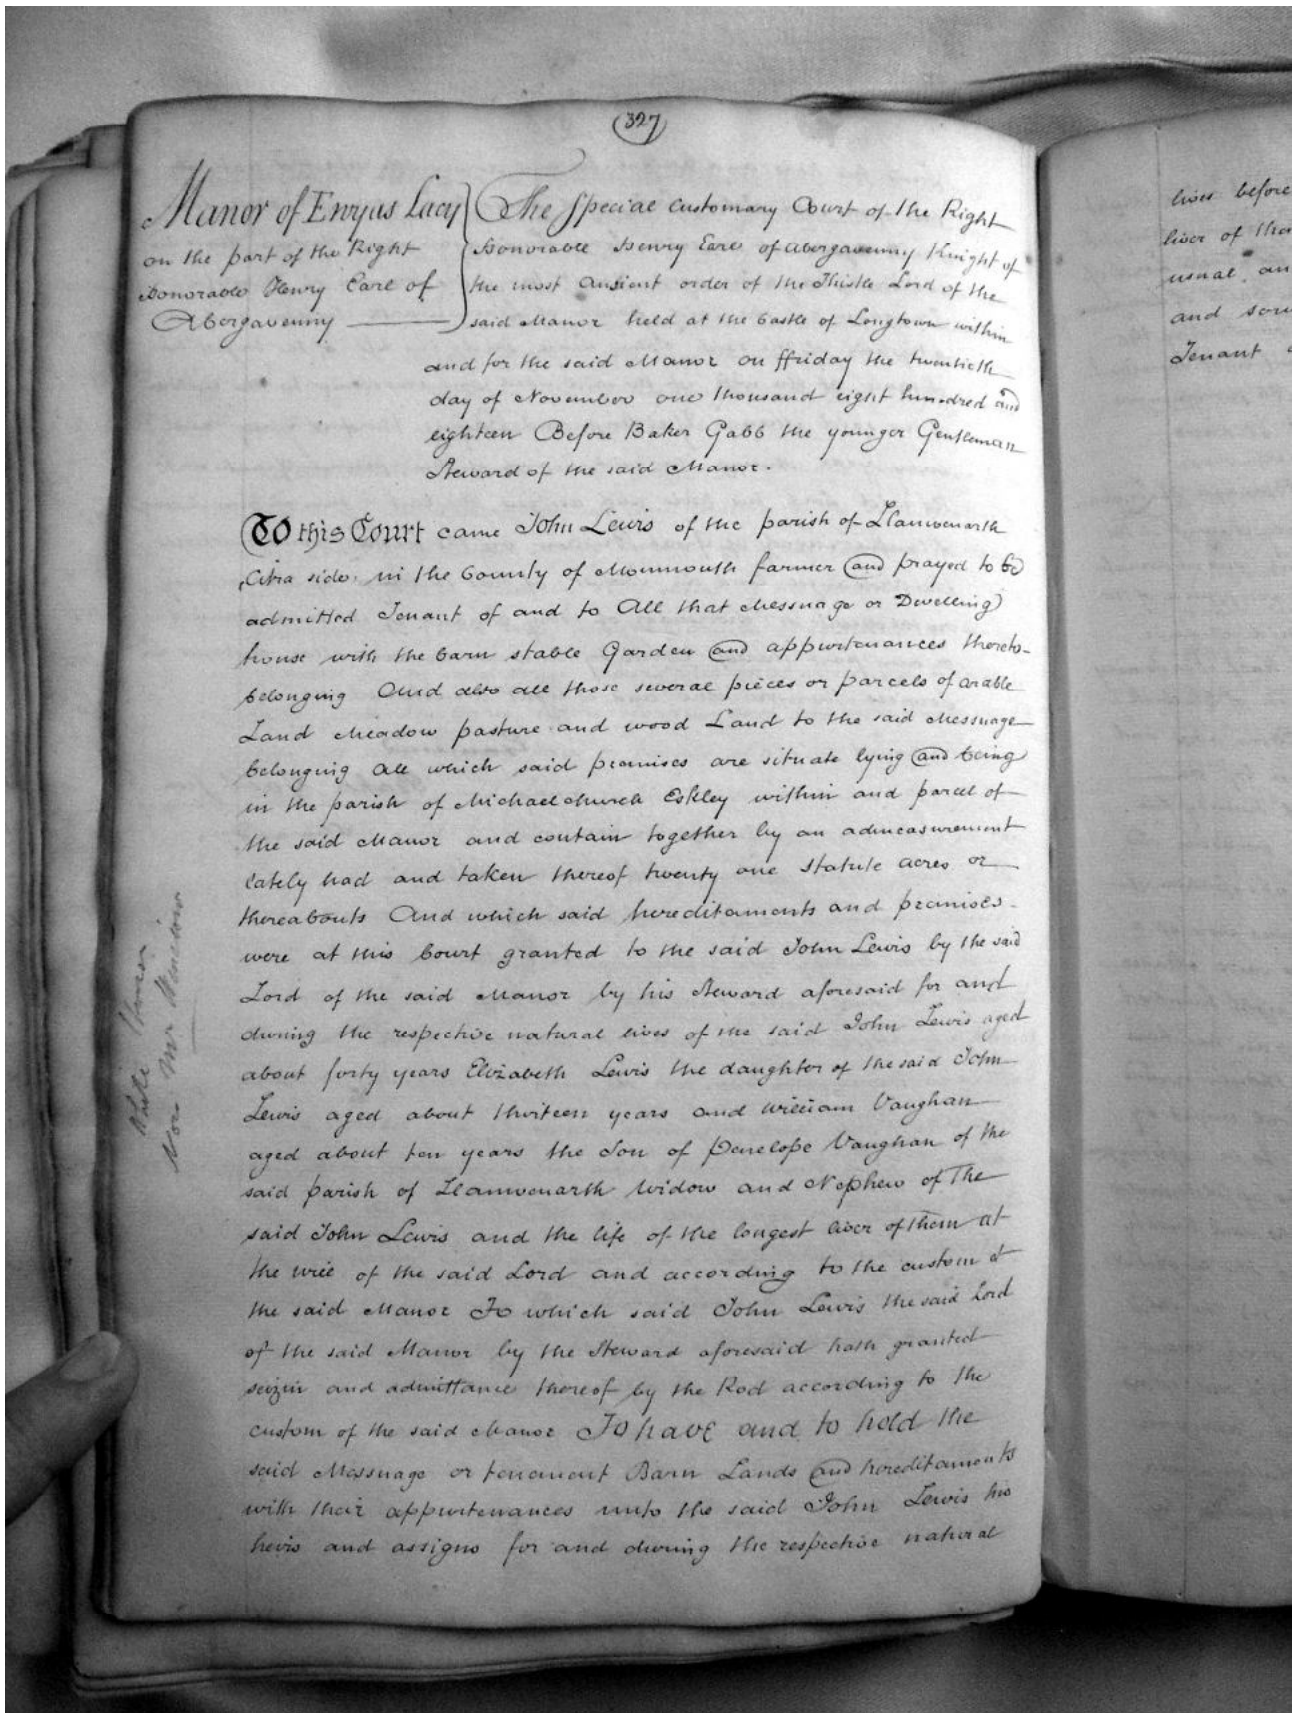 327
Manor of Ewyas Lacy
on the part of the Right
Honorable Henry Earl of
Abergavenny
The Special Customary Court of the Right
Honorable Henry Earl of Abergavenny Knight of
the most Ancient order of the Thistle Lord of the
said Manor held at the Castle of Longtown within
and for the said Manor on ffriday the twentieth
day of November one thousand eight hundred and
eighteen Before Baker Gabb the younger Gentleman
Steward of the said Manor.
To this Court came John Lewis of the parish of Llanwenarth
Citra side in the County of Monmouth farmer and prayed to be
admitted Tenant of and to All that Messuage or Dwelling
house with the barn stable Garden and appurtenances thereto
belonging And also all those several pieces or parcels of arable
Land Meadow pasture and wood Land to the said Messuage
belonging All which said premises are situate lying and being
in the parish of Michaelchurch Eskley within and parcel of
the said Manor and contain together by an admeasurement
lately had and taken thereof twenty one statute acres or
thereabouts And which said hereditaments and premises
were at this Court granted to the said John Lewis by the said
Lord of the said Manor by his Steward aforesaid for and
during the respective natural lives of the said John Lewis aged
about forty years Elizabeth Lewis the daughter of the said John
Lewis aged about thirteen years and William Vaughan
aged about ten years the Son of Penelope Vaughan of the
said parish of Llanwenarth Widow and Nephew of the
said John Lewis and the life of the longest liver of them at
the will of the said Lord and according to the custom of
the said Manor To which said John Lewis the said Lord
of the said Manor by the Steward aforesaid hath granted
seizin and admittance thereof by the Rod according to the
custom of the said Manor To have and to hold the
said Messuage or tenement Barn Lands and hereditaments
with their appurtenances unto the said John Lewis his
heirs and assigns for and during the respective natural
White House
Now Mr
lives before
liver of the
usual an
and
Tenant